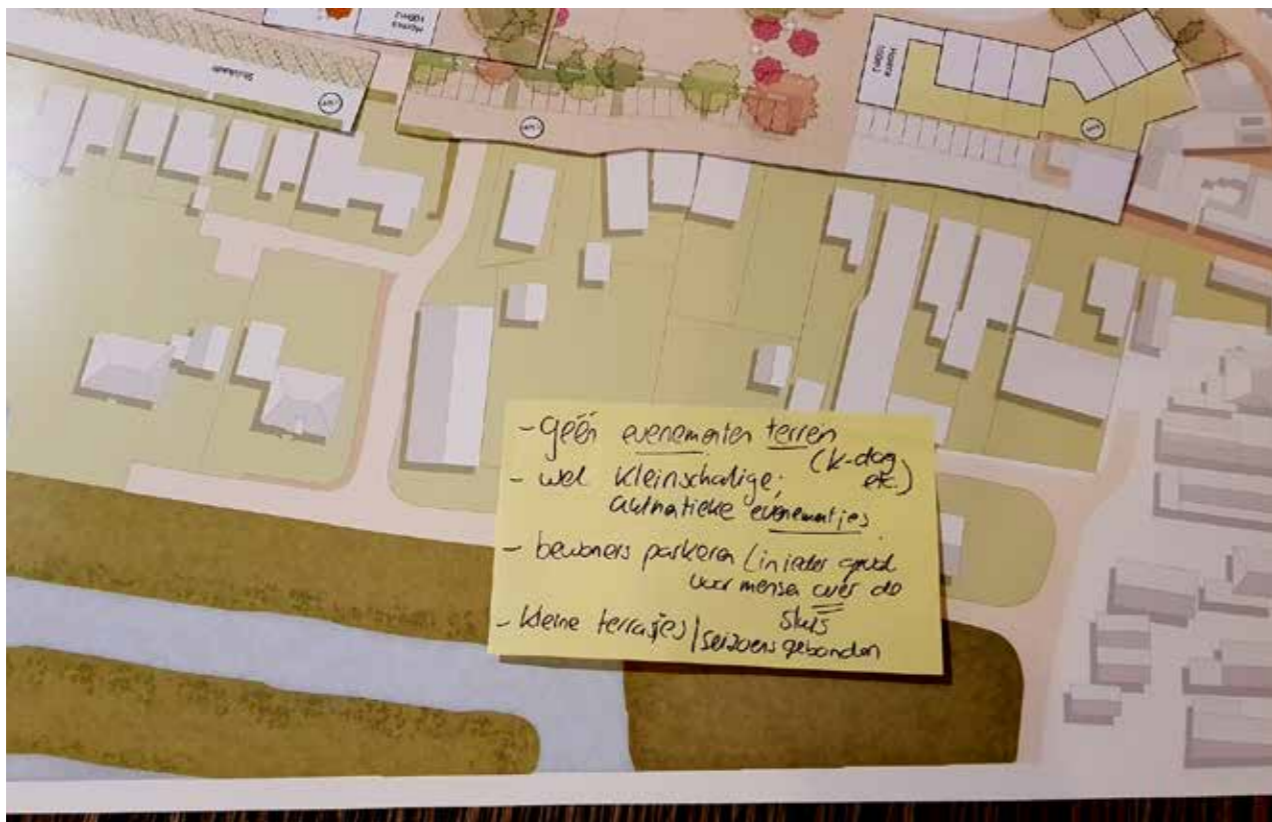 Horeca
100m2
Horeca
100m2
- géén evenementen terren
(k-dag
etc.)
- wel kleinschalige;
authatieke evenementjes.
- bewoners parkeren (in ieder geval
voor mensen over de
sluis
- kleine terrasjes / seizoens gebonden